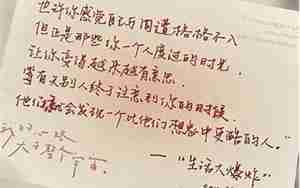 也许你感觉自己与周遭格格不入
但正是那些你一个人度过的时光,
让你变得越来越有意思.
等有天别人终于注意到你的时候,
他们就会发现一个比他们想象中更酷的人."
——"生活大爆炸"